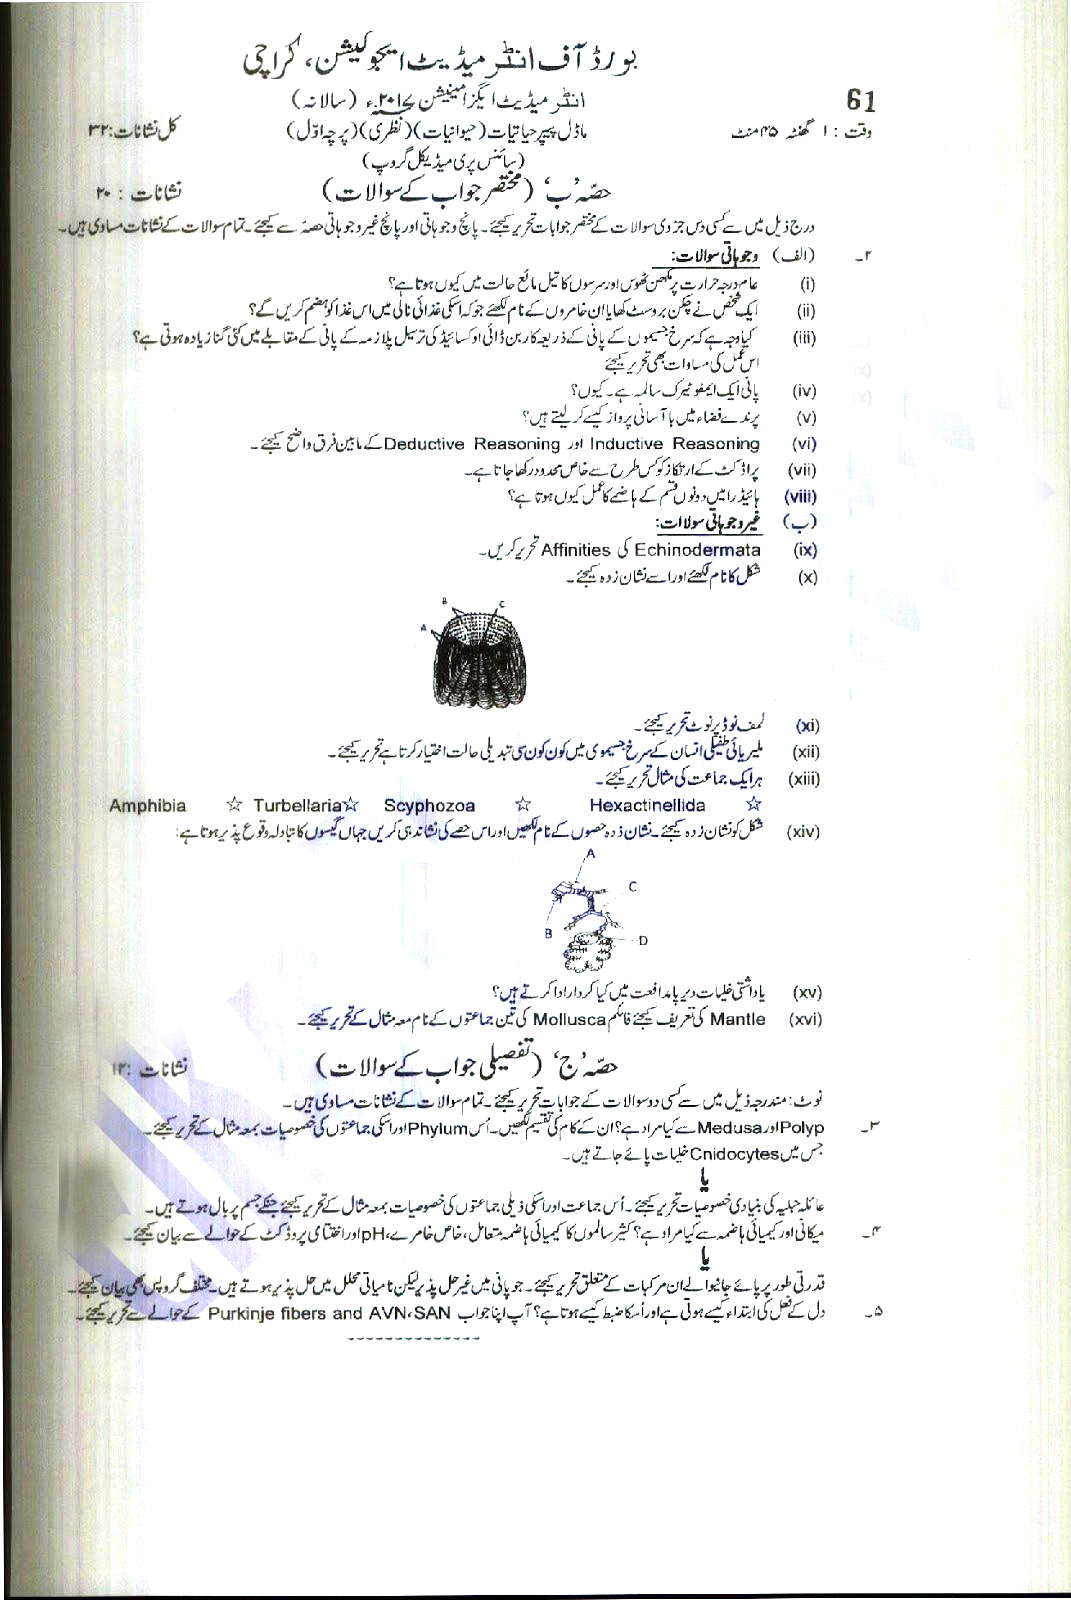 بورڈ آف انٹرمیڈیٹ ایجوکیشن، کراچی
61
انٹرمیڈیٹ ایگزامینیشن ۲۰۱۷ء (سالانہ)
وقت : ۱ گھنٹہ ۴۵ منٹ ماڈل پیپر حیاتیات (حیوانیات) (نظری) (پرچہ اوّل) کل نشانات: ۳۲
(سائنس پری میڈیکل گروپ)
حصّہ 'ب' (مختصر جواب کے سوالات) نشانات : ۲۰
درج ذیل میں سے کسی دس جزوی سوالات کے مختصر جوابات تحریر کیجئے۔ پانچ وجوہاتی اور پانچ غیر وجوہاتی حصّہ سے کیجئے۔ تمام سوالات کے نشانات مساوی ہیں۔
۲۔ (الف) وجوہاتی سوالات:
(i) عام درجہ حرارت پر مکھن ٹھوس اور سرسوں کا تیل مائع حالت میں کیوں ہوتا ہے؟
(ii) ایک شخص نے چکن بروسٹ کھایا ان خامروں کے نام لکھئے جو کہ اسکی غذائی نالی میں اس غذا کو ہضم کریں گے؟
(iii) کیا وجہ ہے کہ سرخ جسیموں کے پانی کے ذریعہ کاربن ڈائی اوکسائیڈ کی ترسیل پلازمہ کے پانی کے مقابلے میں کئی گنا زیادہ ہوتی ہے؟
اس عمل کی مساوات بھی تحریر کیجئے
(iv) پانی ایک ایمفوٹیرک سالمہ ہے۔ کیوں؟
(v) پرندے فضاء میں با آسانی پرواز کیسے کر لیتے ہیں؟
(vi) Inductive Reasoning اور Deductive Reasoning کے مابین فرق واضح کیجئے۔
(vii) پراڈکٹ کے ارتکاز کو کس طرح سے خاص محدود رکھا جاتا ہے۔
(viii) ہائیڈرا میں دونوں قسم کے ہاضمے کا عمل کیوں ہوتا ہے؟
(ب) غیر وجوہاتی سوالات:
(ix) Echinodermata کی Affinities تحریر کریں۔
(x) شکل کا نام لکھئے اور اسے نشان زدہ کیجئے۔
B C
A
(xi) لمف نوڈ پر نوٹ تحریر کیجئے۔
(xii) ملیریائی طفیلی انسان کے سرخ جسیموی میں کون کون سی تبدیلی حالت اختیار کرتا ہے تحریر کیجئے۔
(xiii) ہر ایک جماعت کی مثال تحریر کیجئے۔
☆ Hexactinellida ☆ Scyphozoa ☆ Turbellaria ☆ Amphibia
(xiv) شکل کو نشان زدہ کیجئے۔ نشان زدہ حصوں کے نام لکھیں اور اس حصے کی نشاندہی کریں جہاں گیسوں کا تبادلہ وقوع پذیر ہوتا ہے:
A
C
B
D
(xv) یاداشتی خلیات دیرپا مدافعت میں کیا کردار ادا کرتے ہیں؟
(xvi) Mantle کی تعریف کیجئے فائلم Mollusca کی تین جماعتوں کے نام معہ مثال کے تحریر کیجئے۔
حصّہ 'ج' (تفصیلی جواب کے سوالات) نشانات : ۱۲
نوٹ: مندرجہ ذیل میں سے کسی دو سوالات کے جوابات تحریر کیجئے۔ تمام سوالات کے نشانات مساوی ہیں۔
۳۔ Polyp اور Medusa سے کیا مراد ہے؟ ان کے کام کی تقسیم لکھیں۔ اُس Phylum اور اسکی جماعتوں کی خصوصیات بمعہ مثال کے تحریر کیجئے۔
جس میں Cnidocytes خلیات پائے جاتے ہیں۔
یا
عائلہ حبلیہ کی بنیادی خصوصیات تحریر کیجئے۔ اُس جماعت اور اسکی ذیلی جماعتوں کی خصوصیات بمعہ مثال کے تحریر کیجئے جنکے جسم پر بال ہوتے ہیں۔
۴۔ میکانی اور کیمیائی ہاضمہ سے کیا مراد ہے؟ کثیر سالموں کا کیمیائی ہاضمہ متعامل، خاص خامرے، pH اور اختتامی پروڈکٹ کے حوالے سے بیان کیجئے۔
یا
قدرتی طور پر پائے جانیوالے ان مرکبات کے متعلق تحریر کیجئے۔ جو پانی میں غیر حل پذیر لیکن نامیاتی محلل میں حل پذیر ہوتے ہیں۔ مختلف گروپس بھی بیان کیجئے۔
۵۔ دل کے فعل کی ابتداء کیسے ہوتی ہے اور اُسکا ضبط کیسے ہوتا ہے؟ آپ اپنا جواب SAN، AVN and Purkinje fibers کے حوالے سے تحریر کیجئے۔